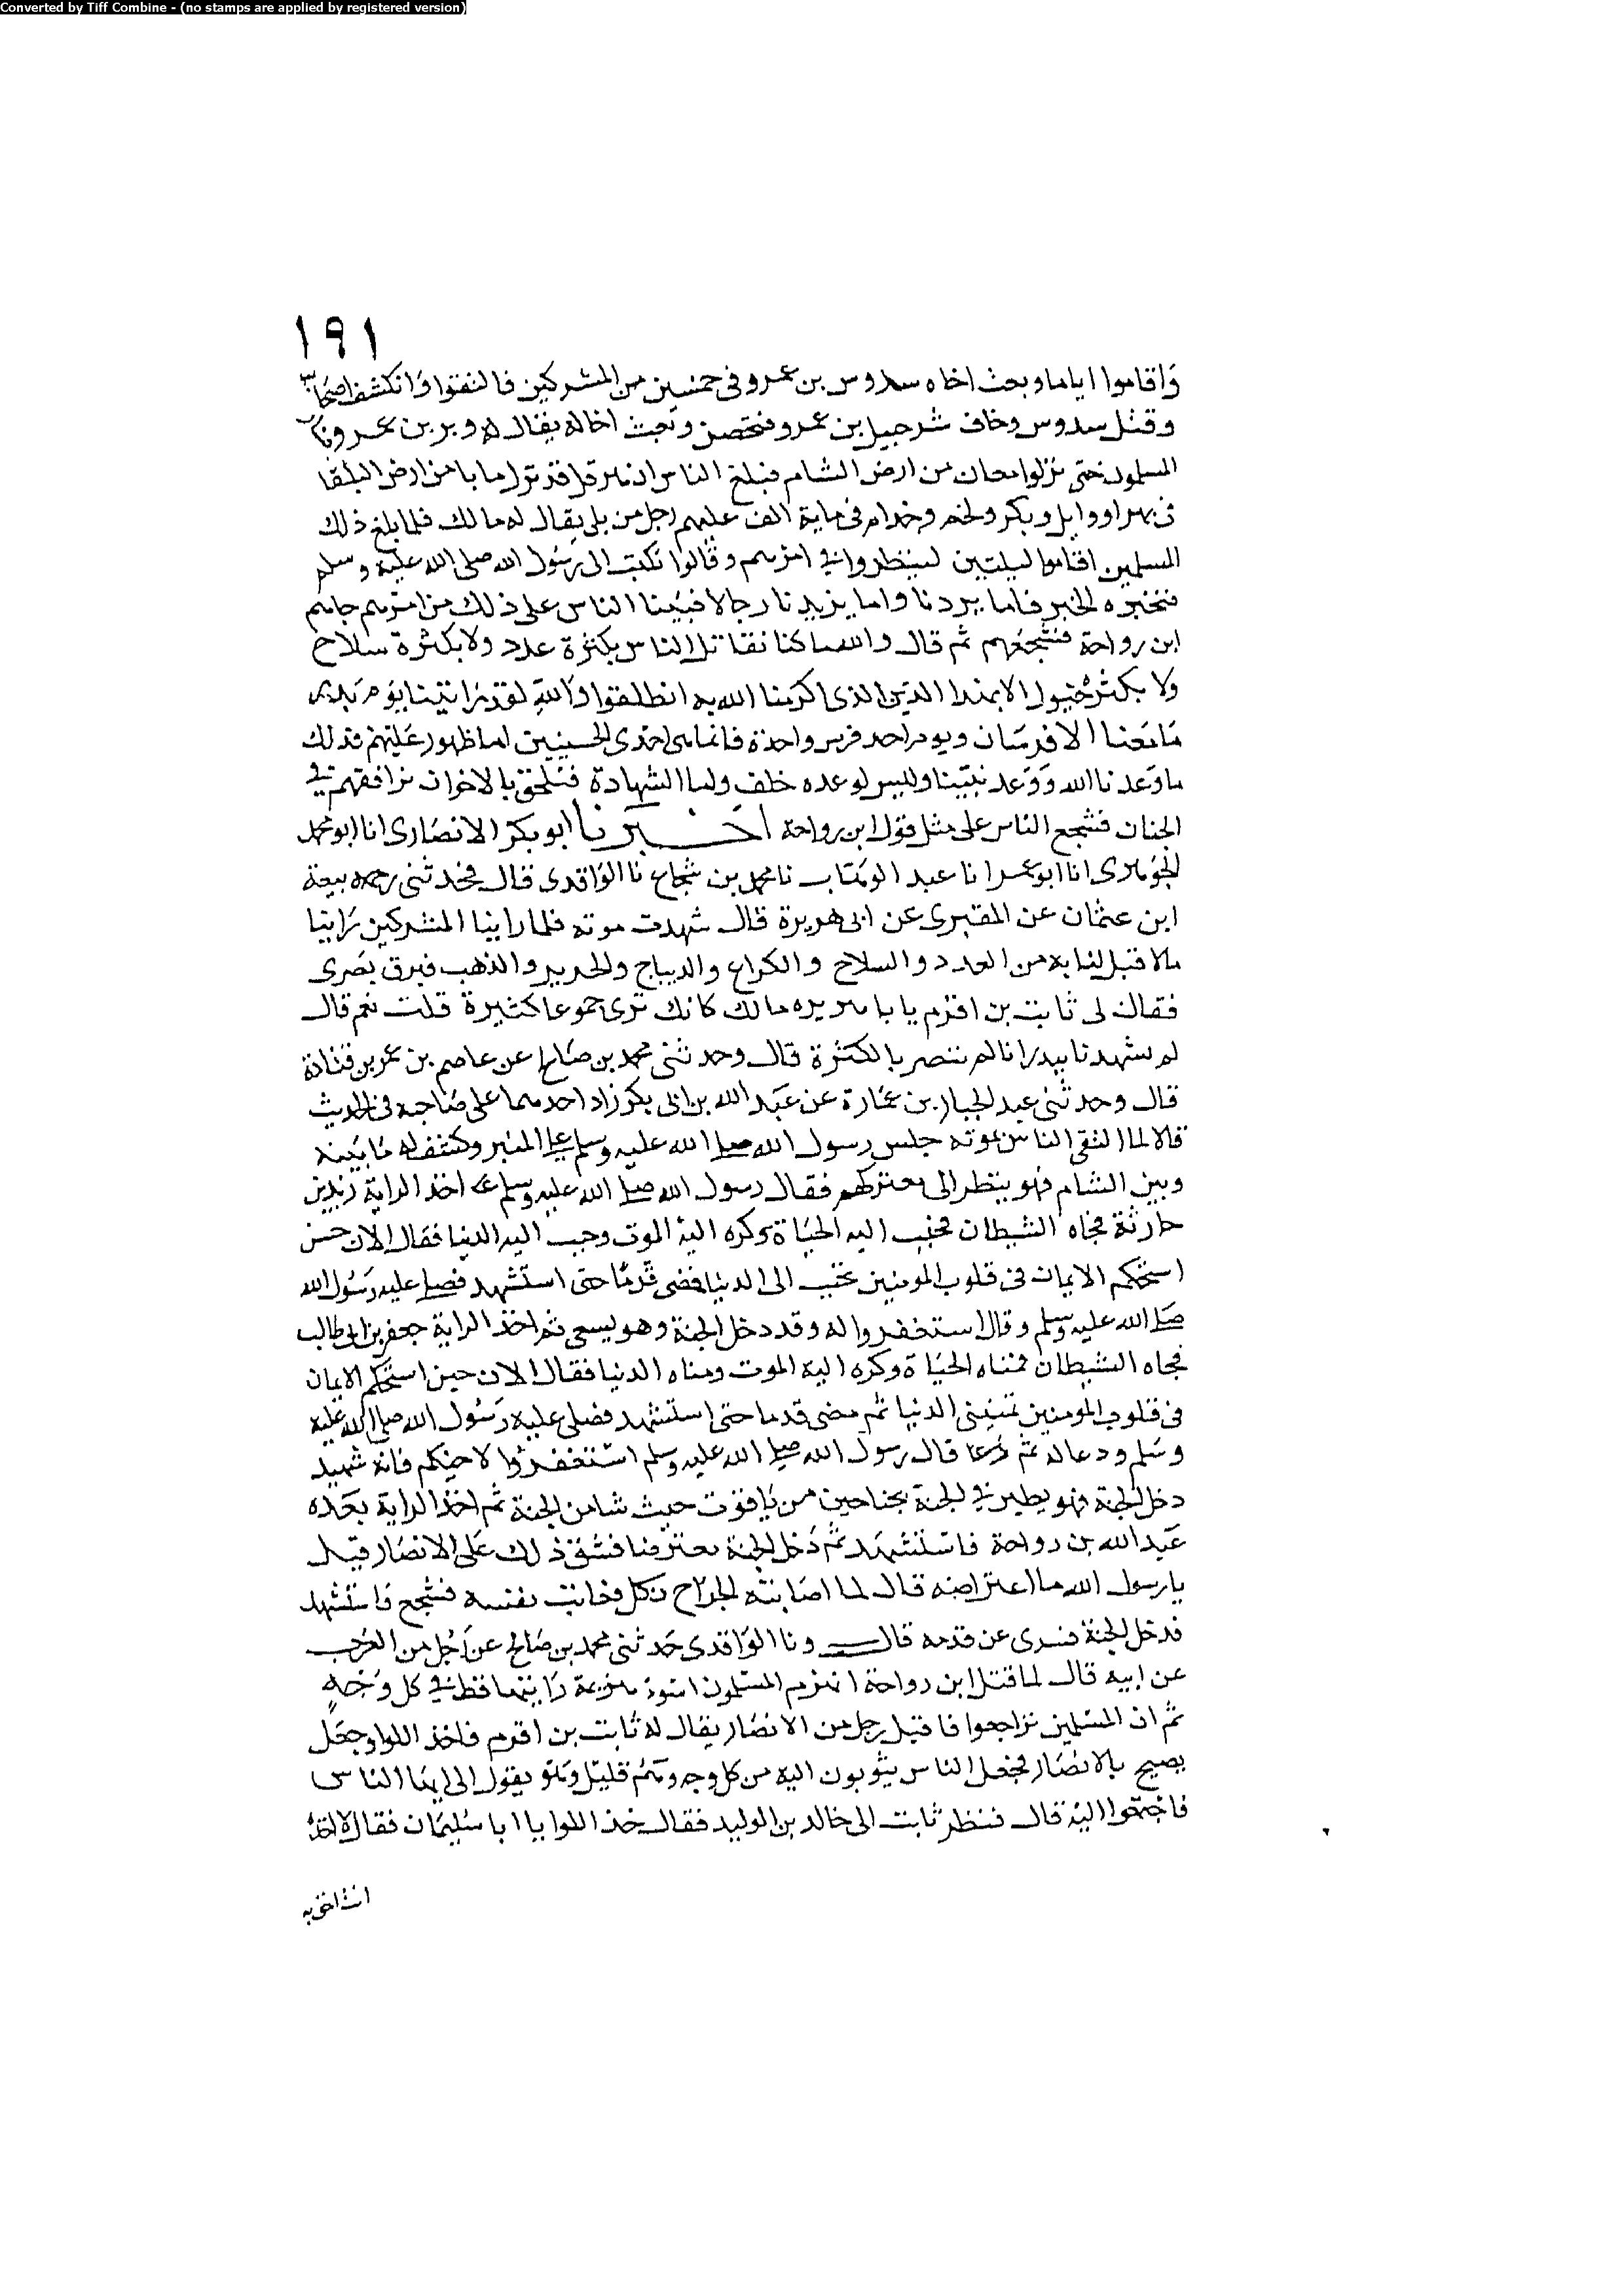 Converted by Tiff Combine - (no stamps are applied by registered version)
١٩١
واقاموا اياما وبعث اخاه سدوس بن عمرو فى خمسين من المشركين فالتقوا وانكشف اصحابه
وقتل سدوس وخاف شرحبيل بن عمرو فتحصن وبعث اخا له يقال له وبر بن عمرو
المسلمون حتى نزلوا معان من ارض الشام فبلغ الناس ان هرقل قد نزل مابا من ارض البلقا
فى بهرا ووايل وبكر ولخم وجذام فى ماية الف عليهم رجل من بلى يقال له مالك فلما بلغ ذلك
المسلمين اقاموا ليلتين لينظروا فى امرهم وقالوا نكتب الى رسول الله صلى الله عليه وسلم
فنخبره الخبر فاما يردنا واما يزيدنا رجالا فبينا الناس على ذلك من امرهم جاهم
ابن رواحة فشجعهم ثم قال والله ما كنا نقاتل الناس بكثرة عدد ولا بكثرة سلاح
ولا بكثرة خيول الا بهذا الدين الذى اكرمنا الله به انطلقوا والله لقد راتينا يوم بدر
ما معنا الا فرسان ويوم احد فرس واحدة فانما هى احدى الحسنيين اما ظهور عليهم فذلك
ما وعدنا الله ووعد نبينا وليس لوعده خلف واما الشهادة فنلحق بالاخوان نرافقهم فى
الجنان فشجع الناس على مثل قول ابن رواحة اخبرنا ابو بكر الانصارى انا ابو محمد
الجوهرى انا ابو عمر انا عبد الوهاب نا محمد بن شجاع نا الواقدى قال فحدثنى ربيعة
ابن عثمان عن المقبرى عن ابى هريرة قال شهدت موته فلما راينا المشركين راينا
ما لا قبل لنا به من العدد والسلاح والكراع والديباج والحرير والذهب فبرق بصرى
فقال لى ثابت بن اقرم يا با هريره مالك كانك ترى جموعا كثيرة قلت نعم قال
لم تشهدنا ببدر انا لم ننصر بالكثرة قال وحدثنى محمد بن صالح عن عاصم بن عمر بن قتادة
قال وحدثنى عبد الجبار بن عمارة عن عبد الله بن ابى بكر زاد احدهما على صاحبه فى الحديث
قالا لما التقى الناس بموته جلس رسول الله صلى الله عليه وسلم على المنبر وكشف له ما بينه
وبين الشام فهو ينظر الى معتركهم فقال رسول الله صلى الله عليه وسلم اخذ الراية زيد بن
حارثة فجاه الشيطان فحبب اليه الحياة وكره اليه الموت وحبب اليه الدنيا فقال الان حين
استحكم الايمان فى قلوب المومنين تحبب الى الدنيا فمضى قدما حتى استشهد فصلى عليه رسول الله
صلى الله عليه وسلم وقال استغفروا له وقد دخل الجنة وهو يسعى ثم اخذ الراية جعفر بن ابى طالب
فجاه الشيطان فمناه الحياة وكره اليه الموت ومناه الدنيا فقال الان حين استحكم الايمان
فى قلوب المومنين تمنينى الدنيا ثم مضى قدما حتى استشهد فصلى عليه رسول الله صلى الله عليه
وسلم ودعا له ثم قال رسول الله صلى الله عليه وسلم استغفروا لاخيكم فانه شهيد
دخل الجنة فهو يطير فى الجنة بجناحين من ياقوت حيث شا من الجنة ثم اخذ الراية بعده
عبد الله بن رواحة فاستشهد ثم دخل الجنة معترضا فشق ذلك على الانصار فقيل
يا رسول الله ما اعتراضه قال لما اصابته الجراح نكل فعاتب نفسه فشجع فاستشهد
فدخل الجنة فسرى عن قومه قال ونا الواقدى حدثنى محمد بن صالح عن رجل من العرب
عن ابيه قال لما قتل ابن رواحة انهزم المسلمون اسوء هزيمة رايتها قط فى كل وجه
ثم ان المسلمين تراجعوا فاقبل رجل من الانصار يقال له ثابت بن اقرم فاخذ اللوا وجعل
يصيح بالانصار فجعل الناس يثوبون اليه من كل وجه وهم قليل وهو يقول الى ايها الناس
فاجتمعوا اليه قال فنظر ثابت الى خالد بن الوليد فقال خذ اللوا يا ابا سليمان فقال لا اخذه
انت احق به